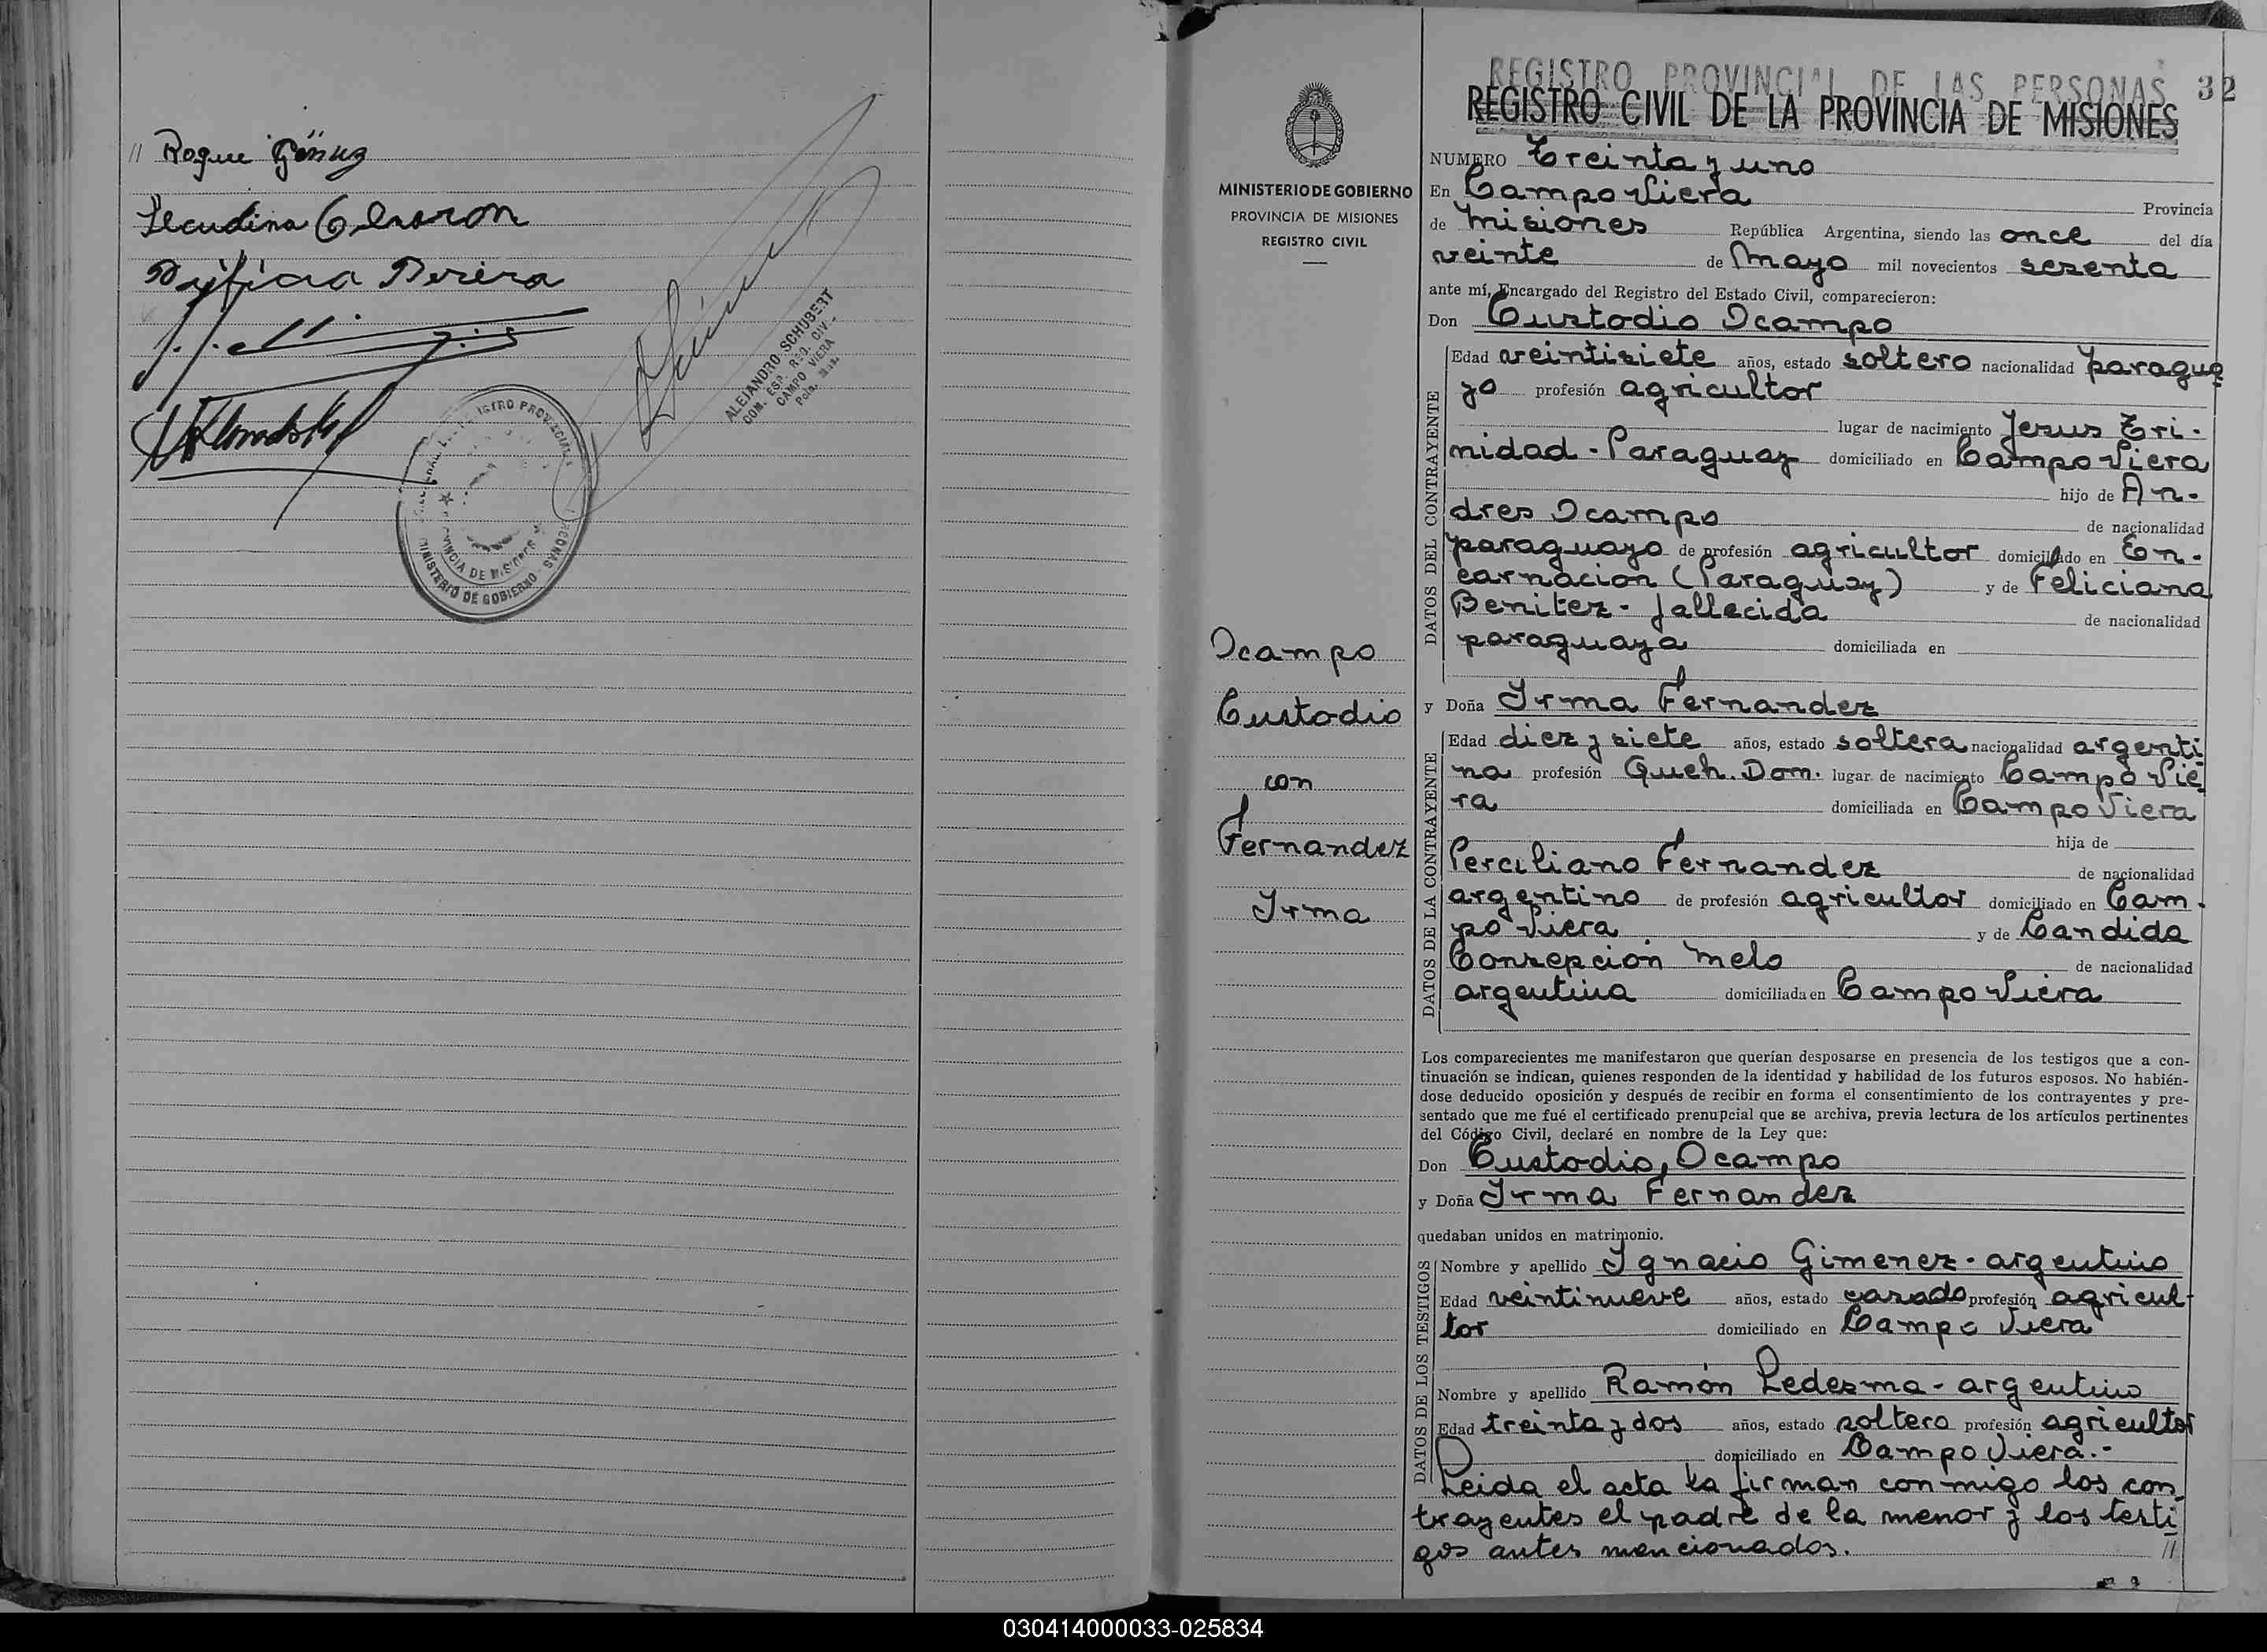 // Roque
Secundina
Pereira
ALEJANDRO SCHUBERT
COM. ESP. REG. CIV.
CAMPO VIERA
MINISTERIO DE GOBIERNO
PROVINCIA DE MISIONES
MINISTERIO DE GOBIERNO
PROVINCIA DE MISIONES
REGISTRO CIVIL
Ocampo
Custodio
con
Fernandez
Irma
REGISTRO PROVINCIAL DE LAS PERSONAS 32
REGISTRO CIVIL DE LA PROVINCIA DE MISIONES
NUMERO Treinta y uno
En Campo Viera Provincia
de Misiones República Argentina, siendo las once del día
veinte de Mayo mil novecientos sesenta
ante mí, Encargado del Registro del Estado Civil, comparecieron:
Don Custodio Ocampo
DATOS DEL CONTRAYENTE
Edad veintisiete años, estado soltero nacionalidad paragua
yo profesión agricultor
lugar de nacimiento Jesus Tri-
nidad - Paraguay domiciliado en Campo Viera
hijo de An-
dres Ocampo de nacionalidad
paraguayo de profesión agricultor domiciliado en En-
carnacion (Paraguay) y de Feliciana
Benitez - fallecida de nacionalidad
paraguaya domiciliada en
y Doña Irma Fernandez
DATOS DE LA CONTRAYENTE
Edad diez y siete años, estado soltera nacionalidad argenti
na profesión Queh. Dom. lugar de nacimiento Campo Vie
ra domiciliada en Campo Viera
hija de
Perciliano Fernandez de nacionalidad
argentino de profesión agricultor domiciliado en Cam-
po Viera y de Candida
Consepción Melo de nacionalidad
argentina domiciliada en Campo Viera
Los comparecientes me manifestaron que querían desposarse en presencia de los testigos que a con-
tinuación se indican, quienes responden de la identidad y habilidad de los futuros esposos. No habién-
dose deducido oposición y después de recibir en forma el consentimiento de los contrayentes y pre-
sentado que me fué el certificado prenupcial que se archiva, previa lectura de los artículos pertinentes
del Código Civil, declaré en nombre de la Ley que:
Don Custodio, Ocampo
y Doña Irma Fernandez
quedaban unidos en matrimonio.
DATOS DE LOS TESTIGOS
Nombre y apellido Ignacio Gimenez - argentino
Edad veintinueve años, estado casado profesión agricul-
tor domiciliado en Campo Viera
Nombre y apellido Ramón Ledesma - argentino
Edad treinta y dos años, estado soltero profesión agricultor
domiciliado en Campo Viera.-
Leida el acta la firman conmigo los con-
trayentes el padre de la menor y los testi
gos antes mencionados. //
030414000033-025834